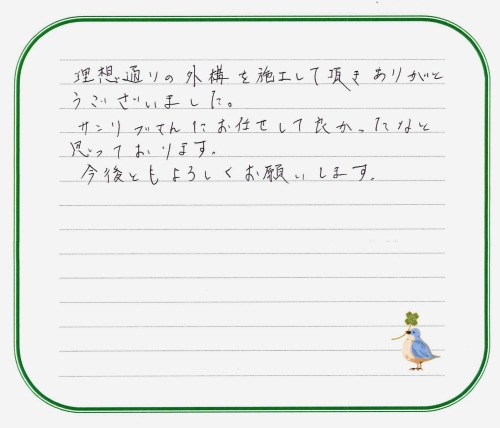 理想通りの外構を施工して頂きありがと
うございました。
サンリブさんにお任せして良かったなと
思っております。
今後ともよろしくお願いします。